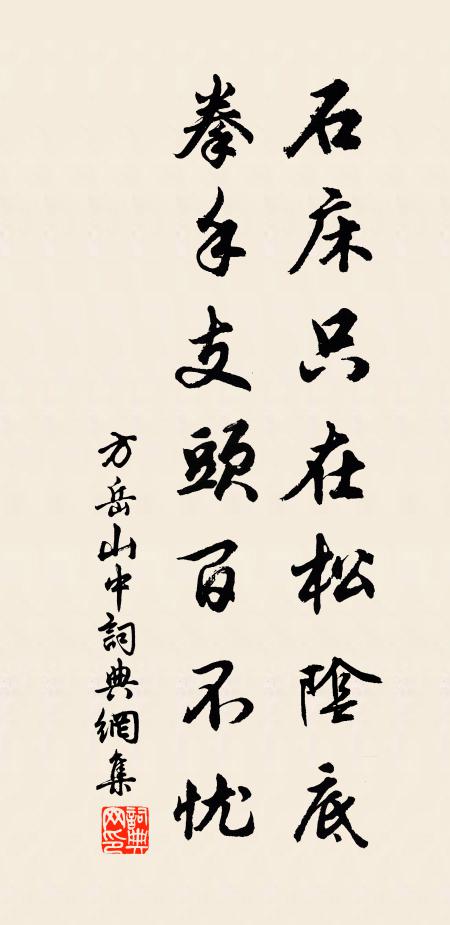 石床只在松陰底
拳手支頭百不忧
方岳山中詞典網集
詞典
网印